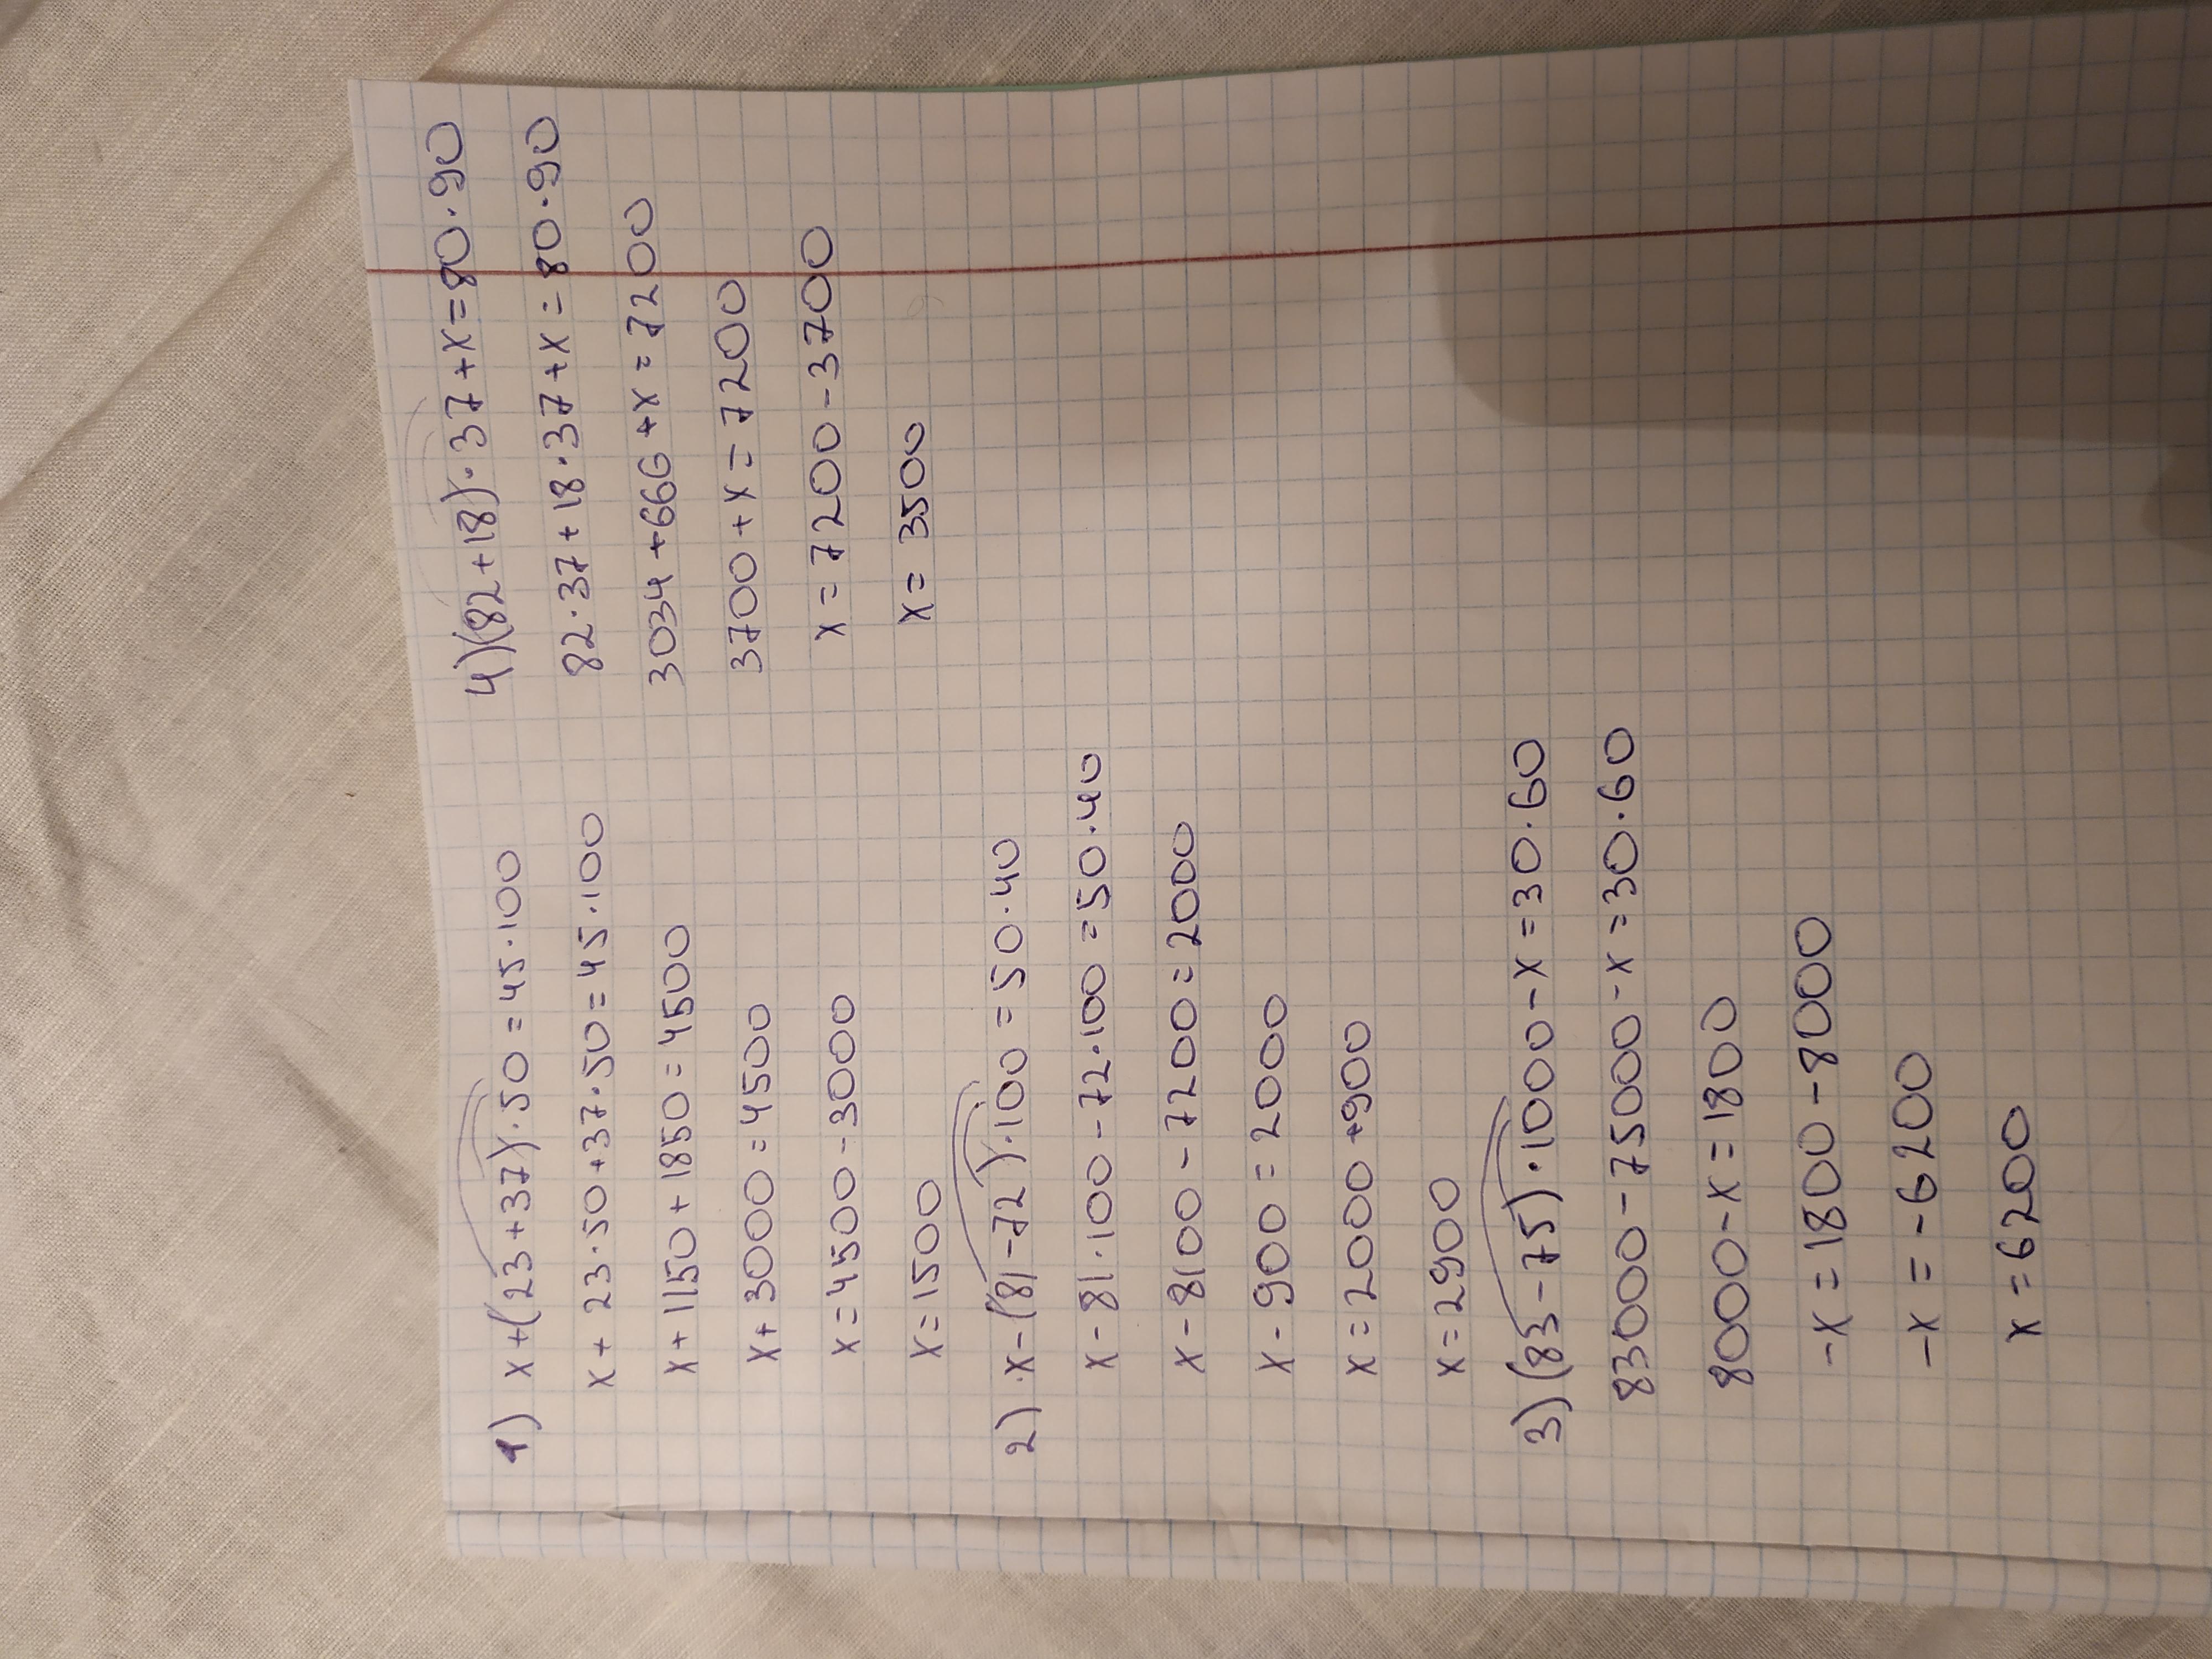 1) x+(23+37)·50=45·100
x+23·50+37·50=45·100
x+1150+1850=4500
x+3000=4500
x=4500-3000
x=1500
2) x-(81-72)·100=50·40
x-81·100-72·100=50·40
x-8100-7200=2000
x-900=2000
x=2000+900
x=2900
3) (83-75)·1000-x=30·60
83000-75000-x=30·60
8000-x=1800
-x=1800-8000
-x=-6200
x=6200
4) (82+18)·37+x=80·90
82·37+18·37+x=80·90
3034+666+x=7200
3700+x=7200
x=7200-3700
x=3500